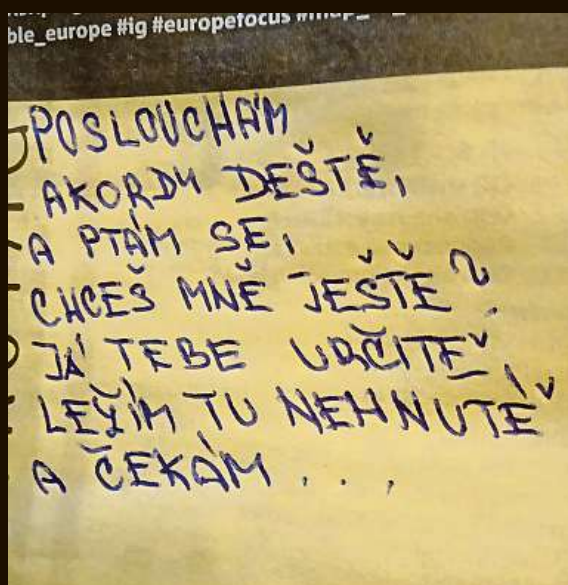 ble_europe #ig #europefocus
POSLOUCHÁM
AKORDY DEŠTĚ,
A PTÁM SE,
CHCEŠ MNĚ JEŠTĚ?
JÁ TEBE URČITĚ,
LEŽÍM TU NEHNUTĚ
A ČEKÁM . . .